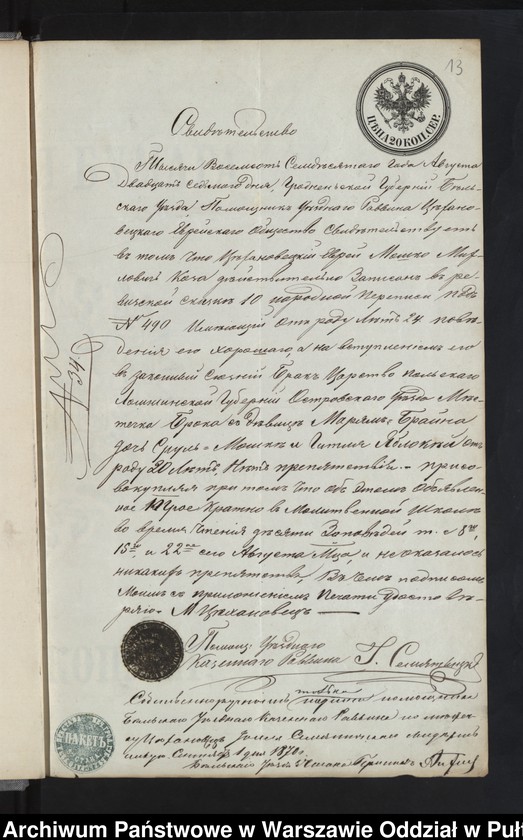 13
ЦѢНА 20 КОП. СЕР.
Свидѣтельство
Тысяча Восемьсотъ Семдесятаго Года Августа
Двадцать седмаго дня, Гродненской Губерніи Бѣль-
скаго Уѣзда Помощникъ Уѣзднаго Раввина Цѣхано-
вецкаго Еврейскаго Общества Свидѣтельствуетъ
въ томъ что Цѣхановецкій Еврей Мошко
Коза дѣйствительно Записанъ въ ре-
вижской сказкѣ 10 народной переписи подъ
№ 490 Имѣющій отъ роду Лѣтъ 24 пове-
денія его хорошаго, а на вступленіе его
въ законный Бракъ Царство Польскаго
Ломжинской Губерніи Островскаго Уѣзда Мѣс-
течка Брока съ дѣвицею Маріямъ-Брайна
дочь Сруль-Мошки и Гитля Яблонка отъ
роду 20 Лѣтъ Нѣтъ препятствій. - присо-
вокупляя при томъ что объ этомъ Объявлен-
ное Трое Кратно въ Молитвенной Школѣ
во время Чтенія десяти Заповѣдей т. е 8го,
15го и 22го сего Августа Мца, и не оказалось
никакихъ препятствъ, Въ чемъ подписомъ
Моимъ съ приложеніемъ Печати Удостовѣ-
ряю М Цѣхановецъ
Помощ: Уѣзднаго
Казеннаго Раввина
№ 34
Собственноручный подпись помощника
Бѣльскаго Уѣзднаго Казеннаго Раввина по
Сентября 1 дня 1870 г.
ПАКЕТЪ
Archiwum Państwowe w Warszawie Oddział w Puł